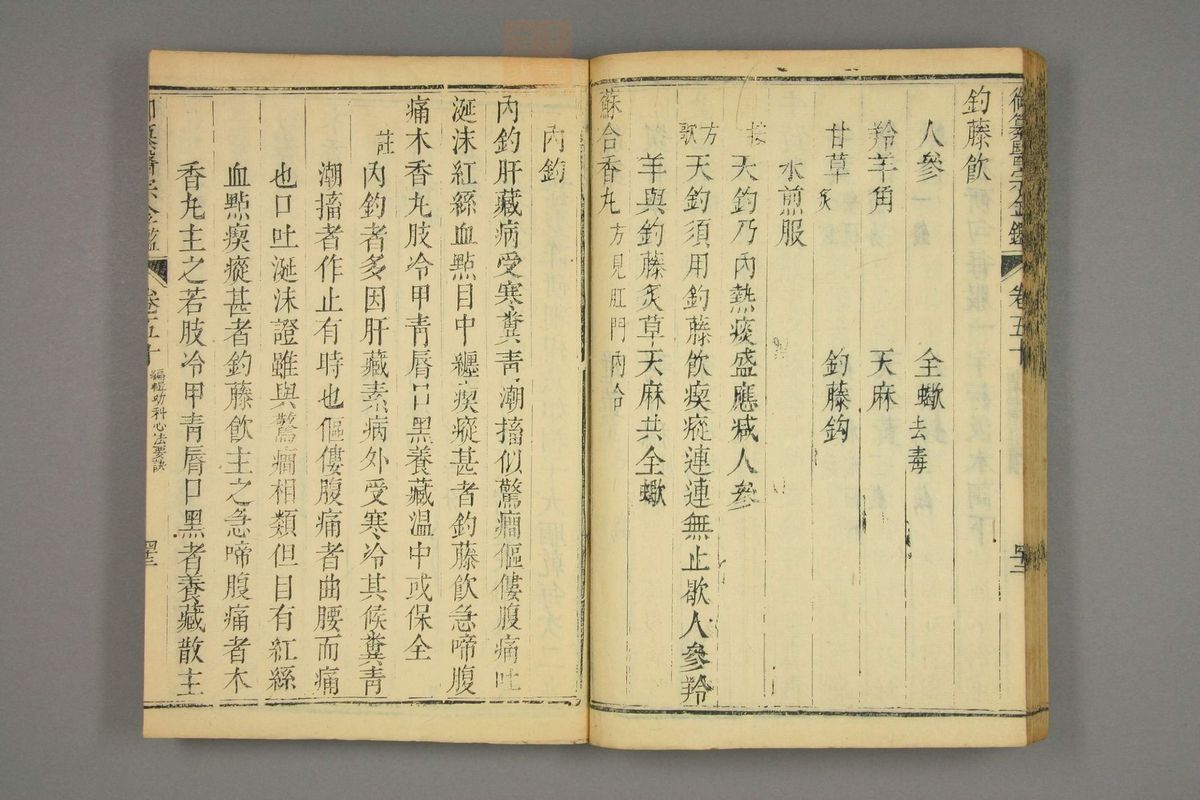 御纂醫宗金鑑 卷五十
釣藤飲
人參 全蠍去毒
羚羊角 天麻
甘草炙 釣藤鈎
水煎服
按 天釣乃內熱痰盛應減人參
方歌 天釣須用釣藤飲瘈瘲連連無止歇人參羚
羊與釣藤炙草天麻共全蠍
蘇合香丸方見肛門內合
內釣
內釣肝藏病受寒糞青潮搐似驚癇傴僂腹痛吐
涎沫紅絲血點目中纏瘈瘲甚者釣藤飲急啼腹
痛木香丸肢冷甲青唇口黑養藏溫中或保全
註 內釣者多因肝藏素病外受寒冷其候糞青
潮搐者作止有時也傴僂腹痛者曲腰而痛
也口吐涎沫證雖與驚癇相類但目有紅絲
血點瘈瘲甚者釣藤飲主之急啼腹痛者木
香丸主之若肢冷甲青唇口黑者養藏散主
卷五十 編輯幼科心法要訣